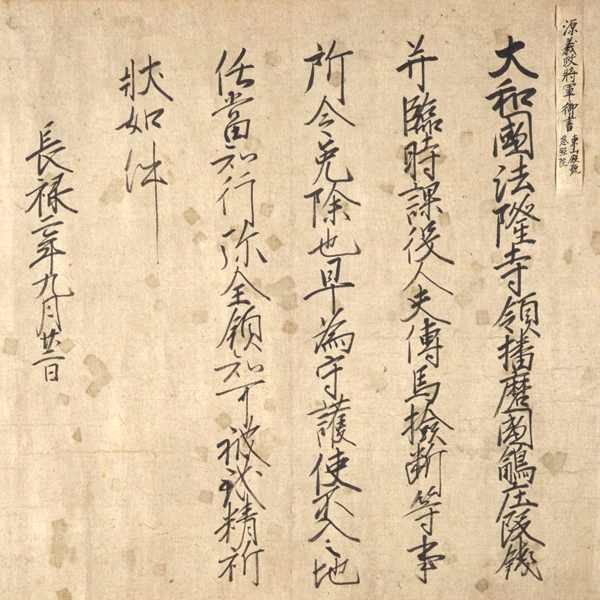 源義政將軍御書
東山殿號
慈照院
大和國法隆寺領播磨國鵤庄段錢
并臨時課役人夫傳馬撿断等事
所令免除也早為守護使不入之地
任當知行弥全領知可被致精祈
狀如件
長禄二年九月廿二日